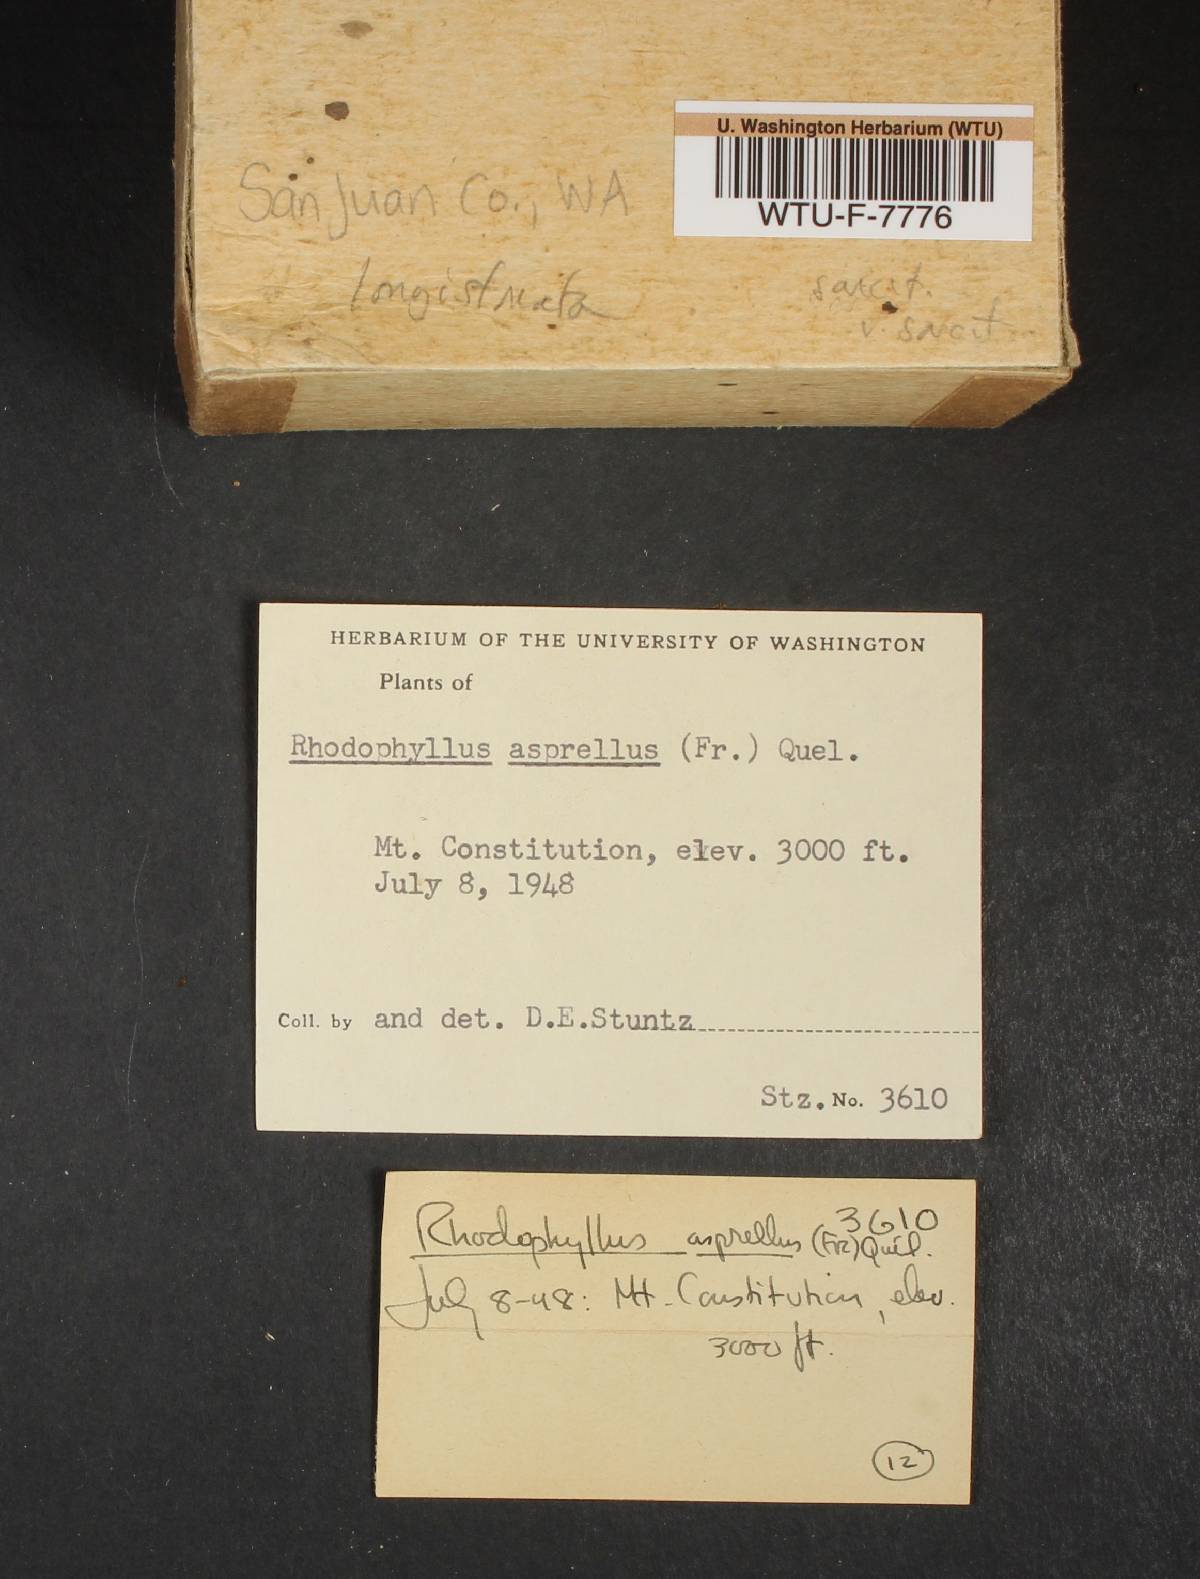 U. Washington Herbarium (WTU)
WTU-F-7776
San Juan Co., WA
longistriata
sarcit.
v. sarcit.
HERBARIUM OF THE UNIVERSITY OF WASHINGTON
Plants of
Rhodophyllus asprellus (Fr.) Quel.
Mt. Constitution, elev. 3000 ft.
July 8, 1948
Coll. by and det. D.E.Stuntz
Stz. No. 3610
3610
Rhodophyllus asprellus (Fr.) Quél.
July 8-48: Mt. Constitution, elev.
3000 ft.
12